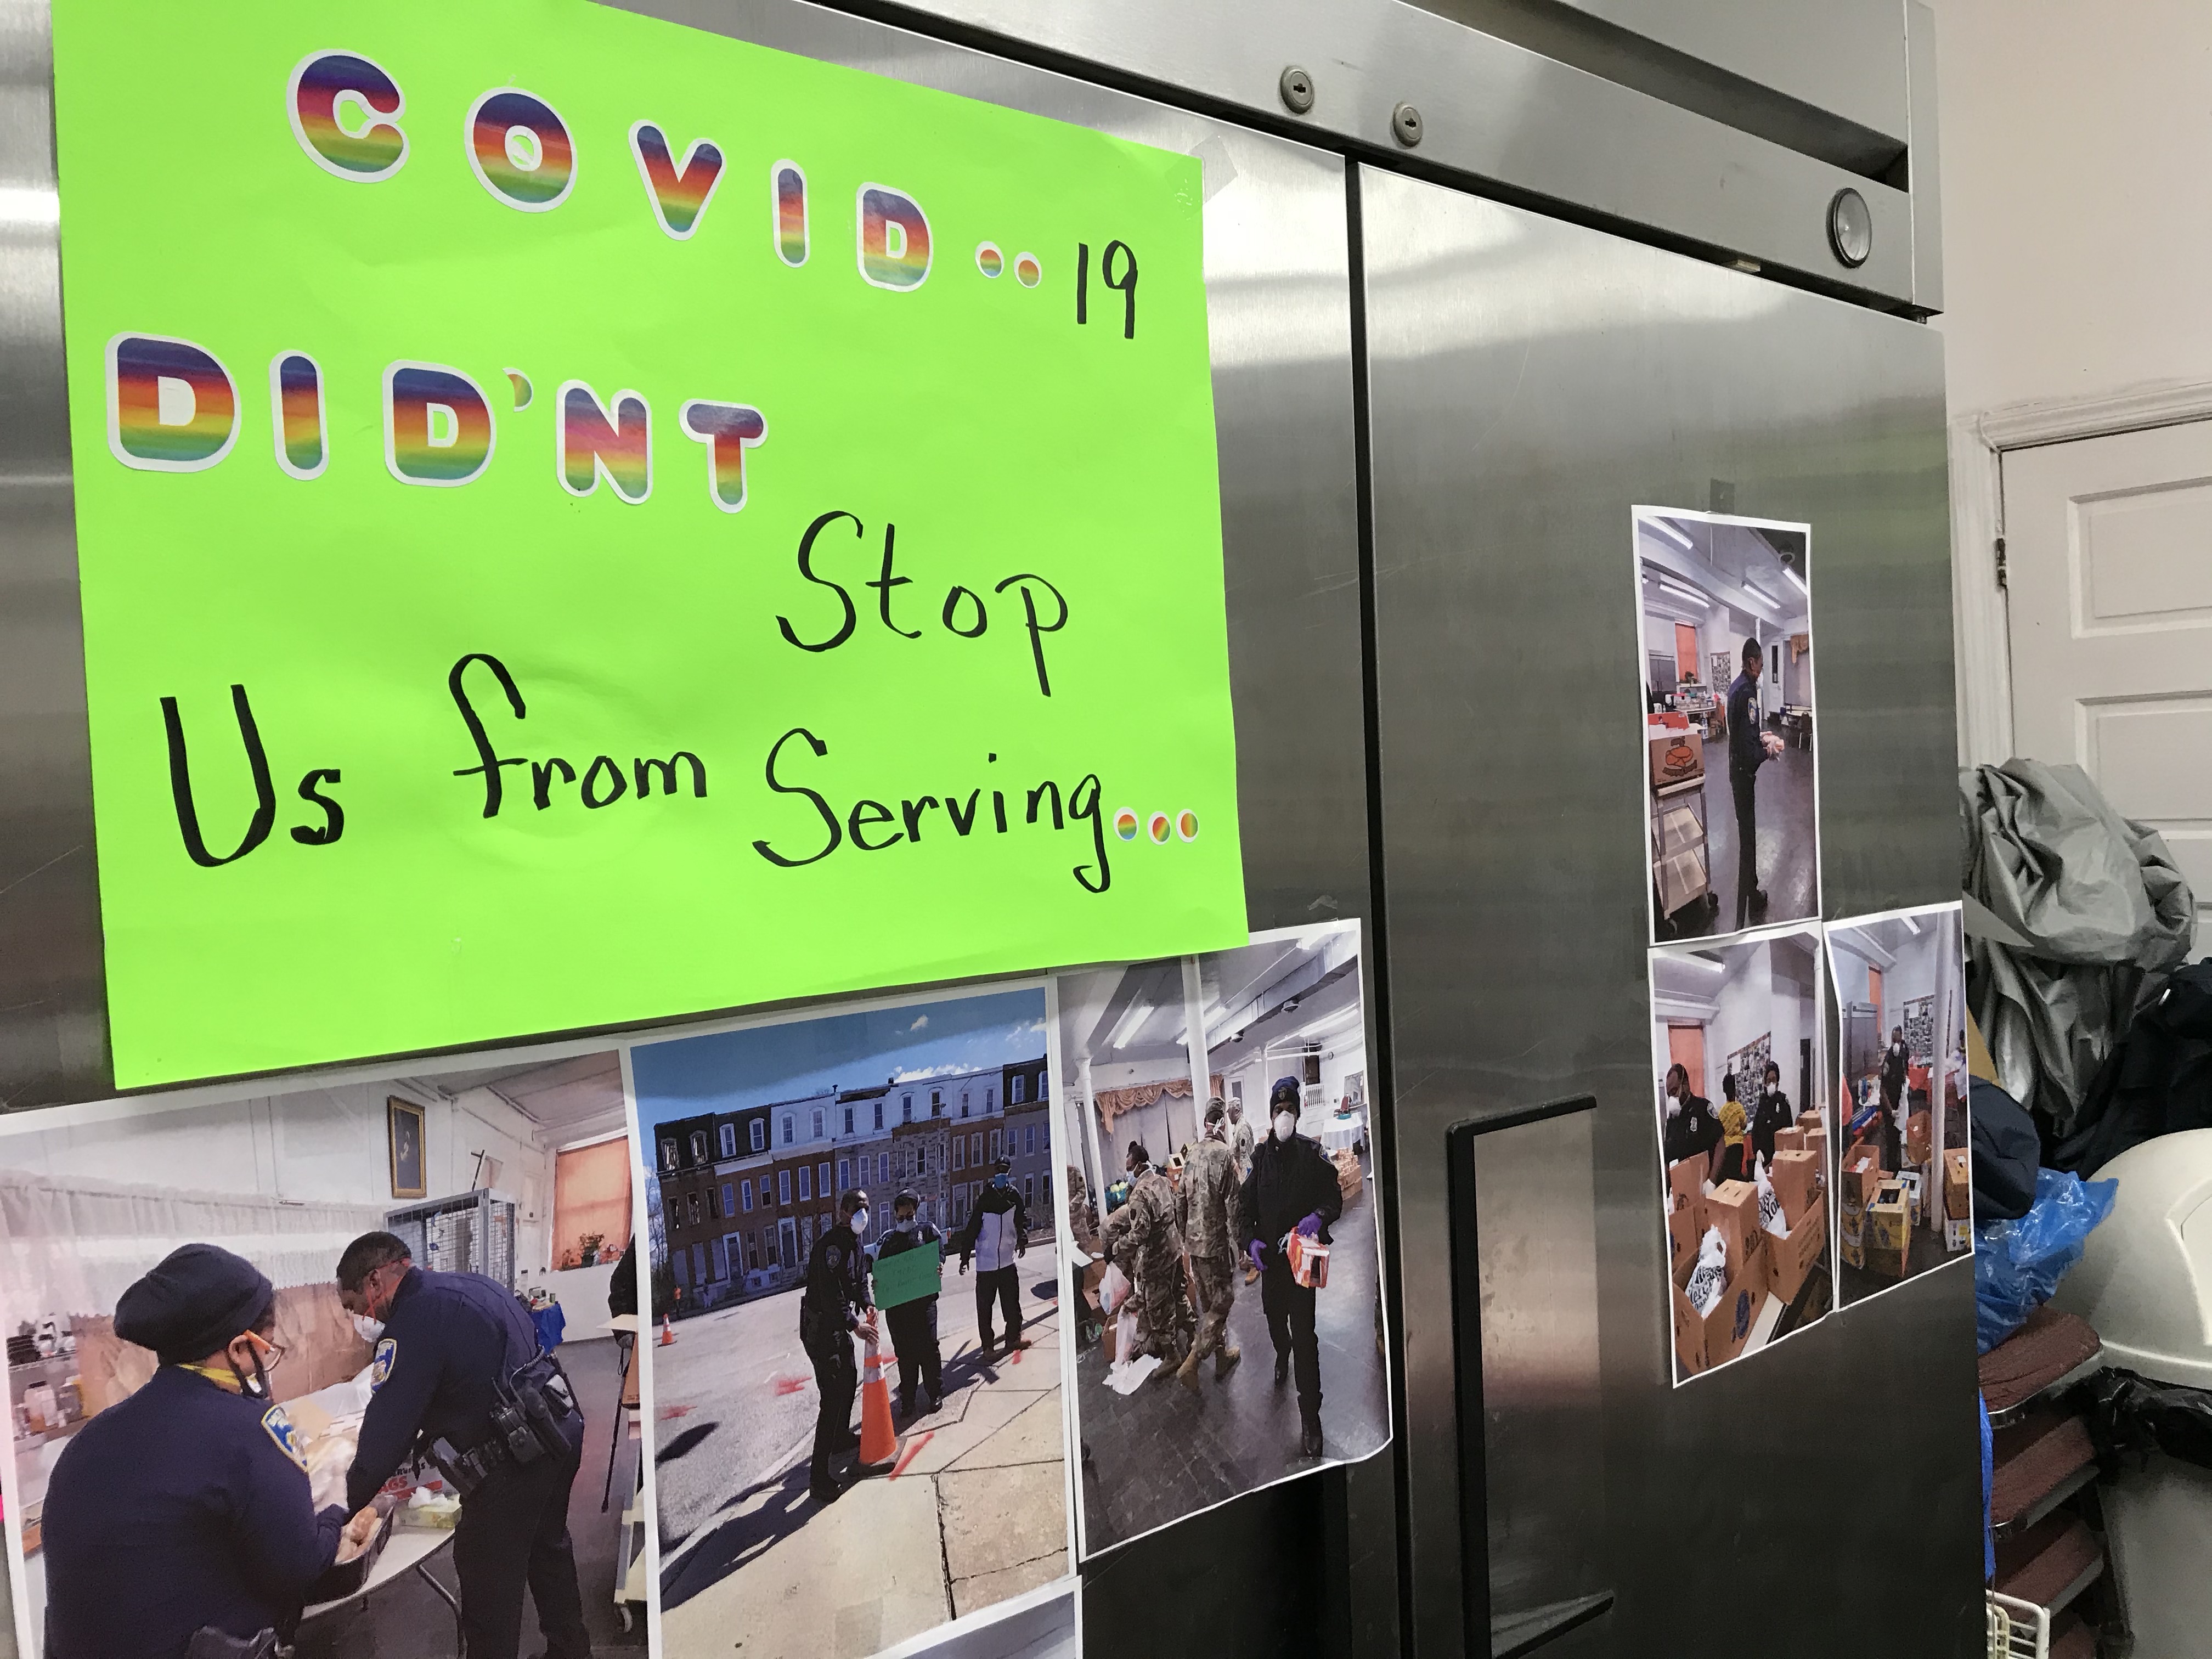 COVID..19
DID'NT
Stop
Us from Serving...